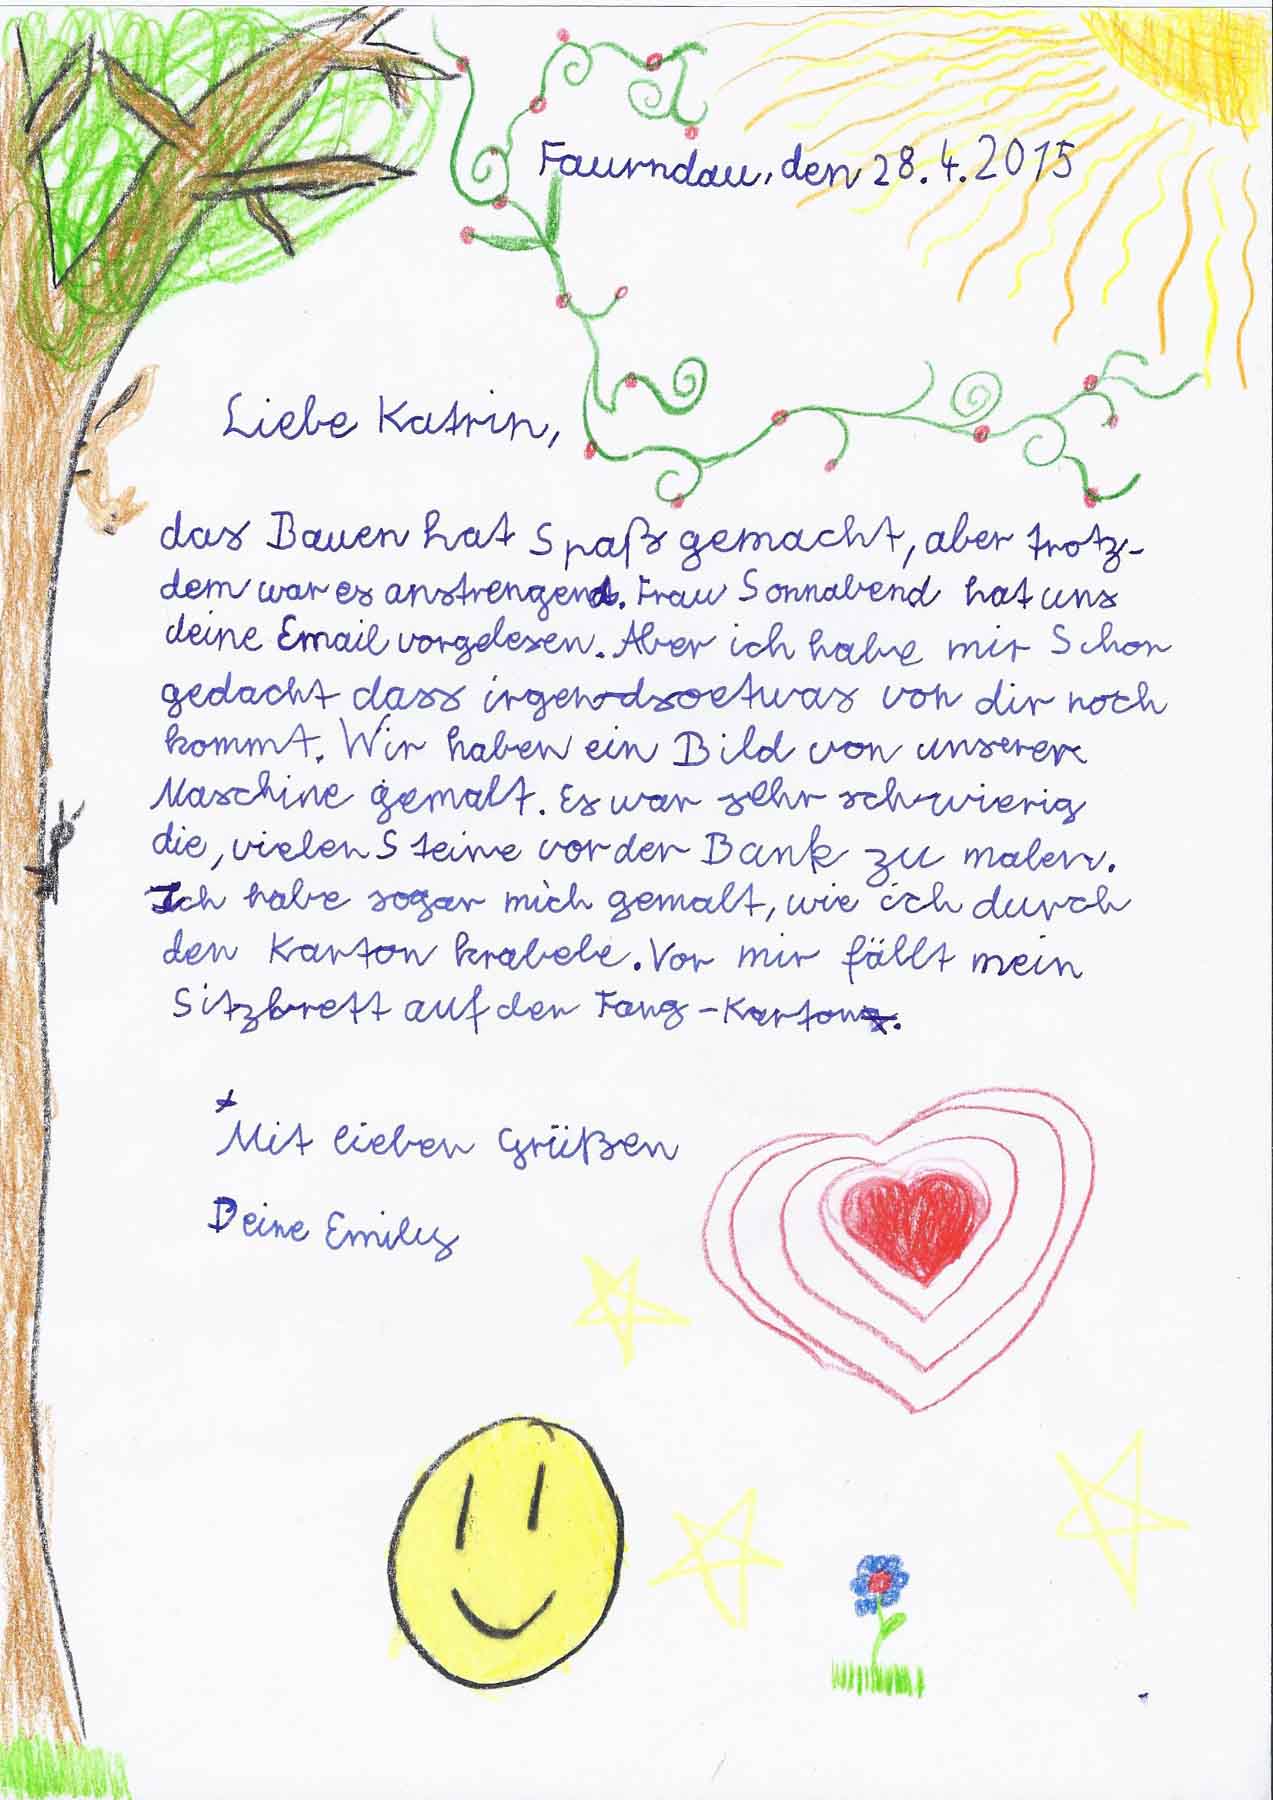 Faurndau, den 28.4.2015
Liebe Katrin,
das Bauen hat Spaß gemacht, aber trotz-
dem war es anstrengend. Frau Sonnabend hat uns
deine Email vorgelesen. Aber ich habe mir Schon
gedacht dass irgendsoetwas von dir noch
kommt. Wir haben ein Bild von unserer
Maschine gemalt. Es war sehr schwierig
die, vielen Steine vor der Bank zu malen.
Ich habe sogar mich gemalt, wie ich durch
den Karton krabele. Vor mir fällt mein
Sitzbrett auf den Fang-Karton.
Mit lieben Grüßen
Deine Emily